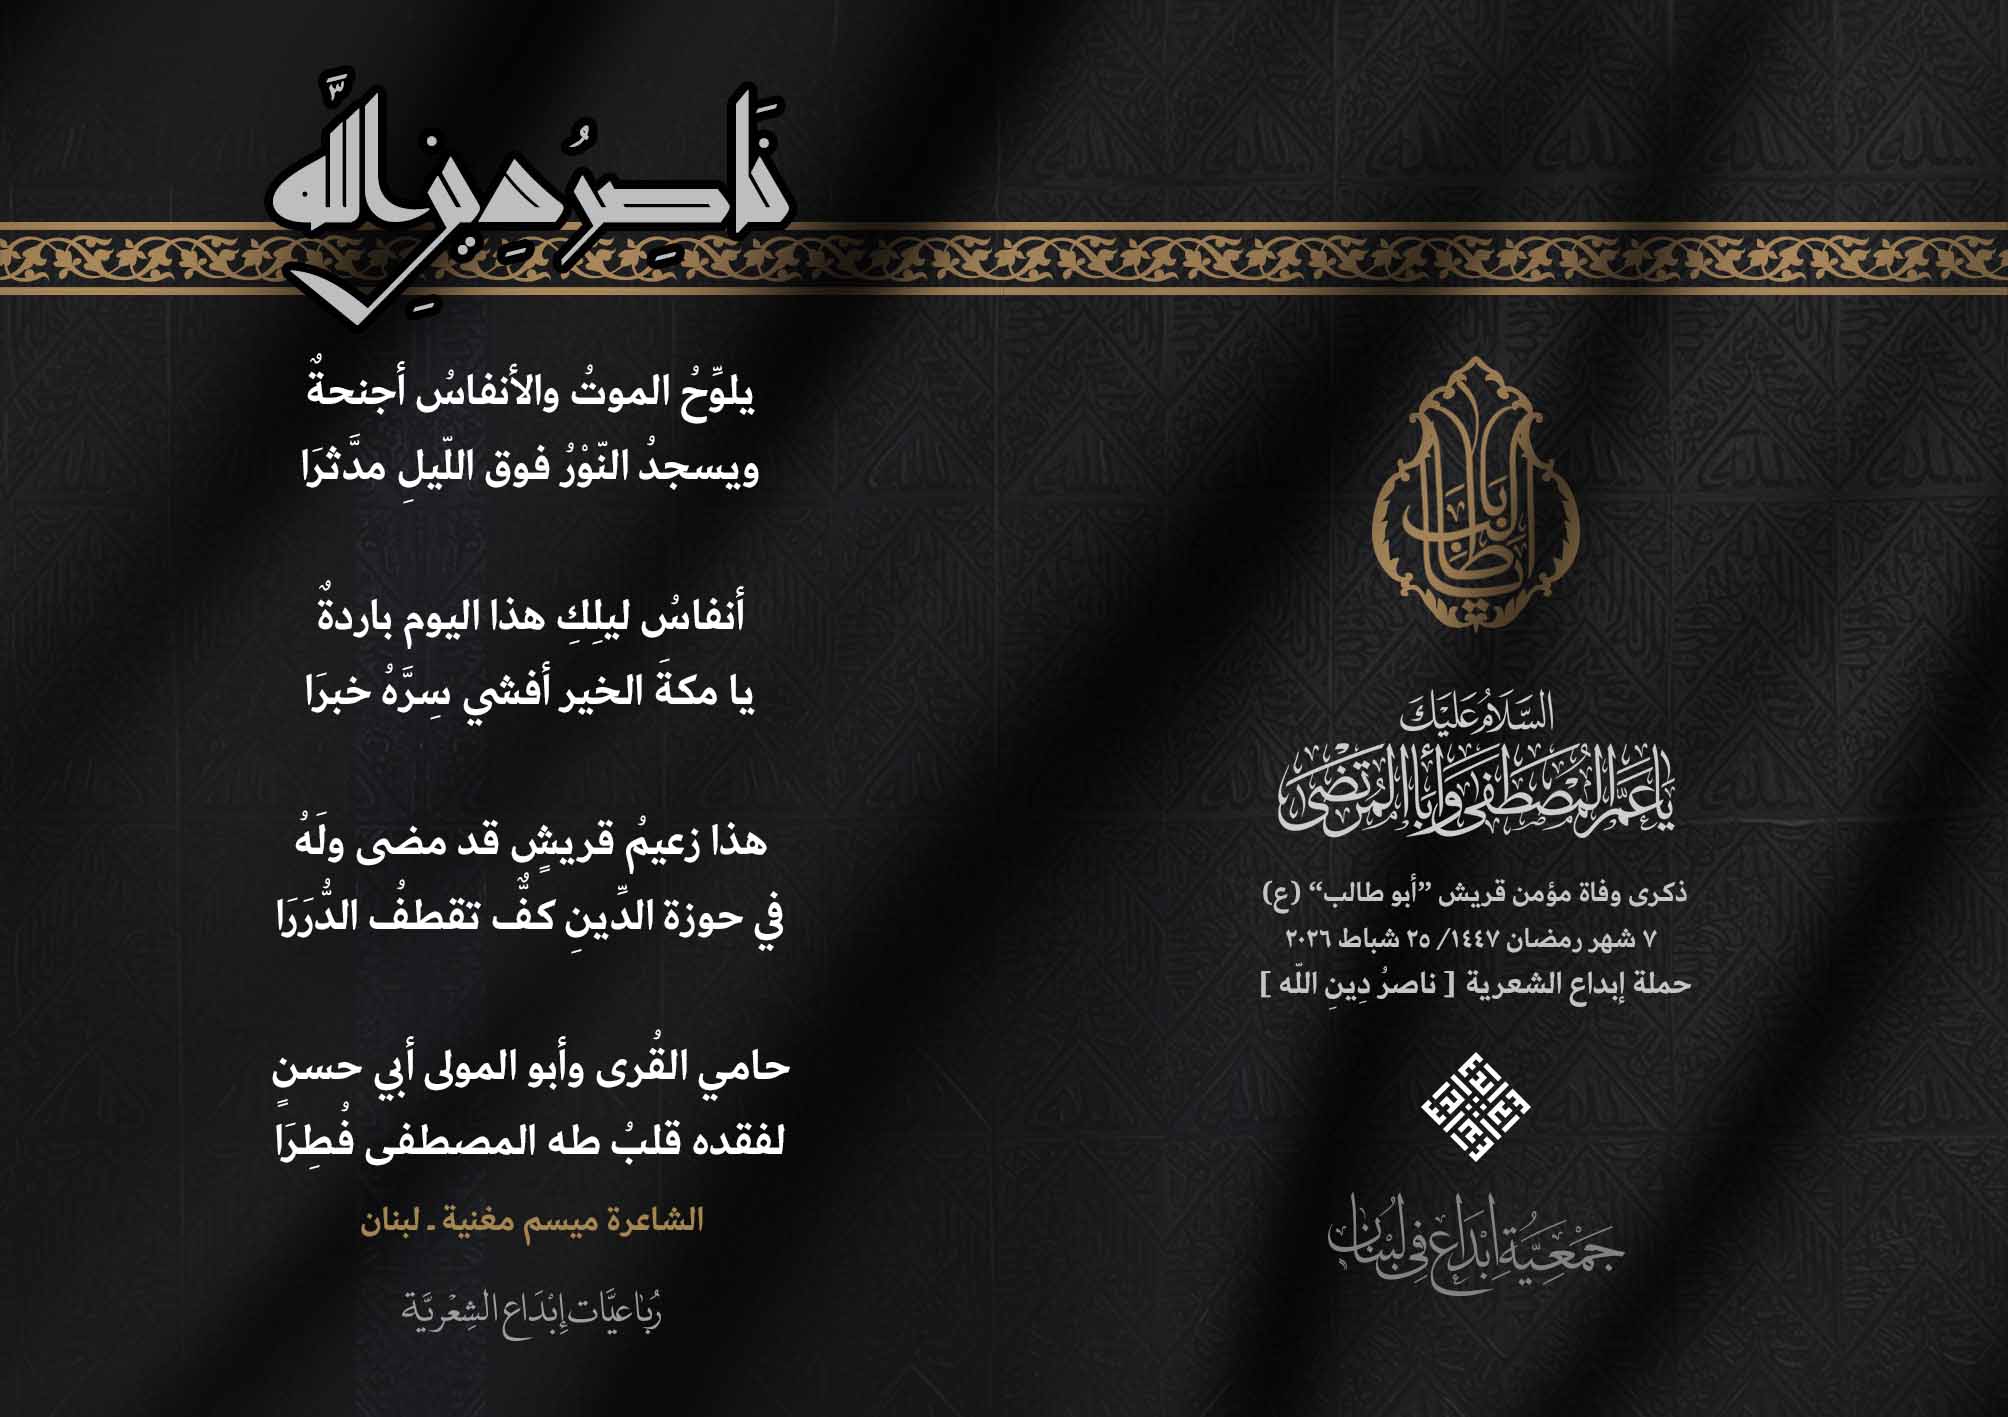 ناصِرُ دِينِ اللَّه
يلوِّحُ الموتُ والأنفاسُ أجنحةٌ
ويسجدُ النّوْرُ فوق اللّيلِ مدَّثرَا
أنفاسُ ليلِكِ هذا اليوم باردةٌ
يا مكةَ الخير أفشي سِرَّهُ خبرَا
هذا زعيمُ قريشٍ قد مضى ولَهُ
في حوزة الدِّينِ كفٌّ تقطفُ الدُّرَرَا
حامي القُرى وأبو المولى أبي حسنٍ
لفقده قلبُ طه المصطفى فُطِرَا
الشاعرة ميسم مغنية ـ لبنان
رُبَاعيَّات إِبْدَاع الشِعْريَّة
يا أبا طالب
السَّلَامُ عَلَيْكَ
يَا عَمَّ الْمُصْطَفَى وَأَبَا الْمُرْتَضَى
ذكرى وفاة مؤمن قريش ”أبو طالب“ (ع)
٧ شهر رمضان ١٤٤٧/ ٢٥ شباط ٢٠٢٦
حملة إبداع الشعرية [ ناصرُ دِينِ اللّه ]
جَمْعِيَّةِ إِبْدَاع فِي لُبْنَان